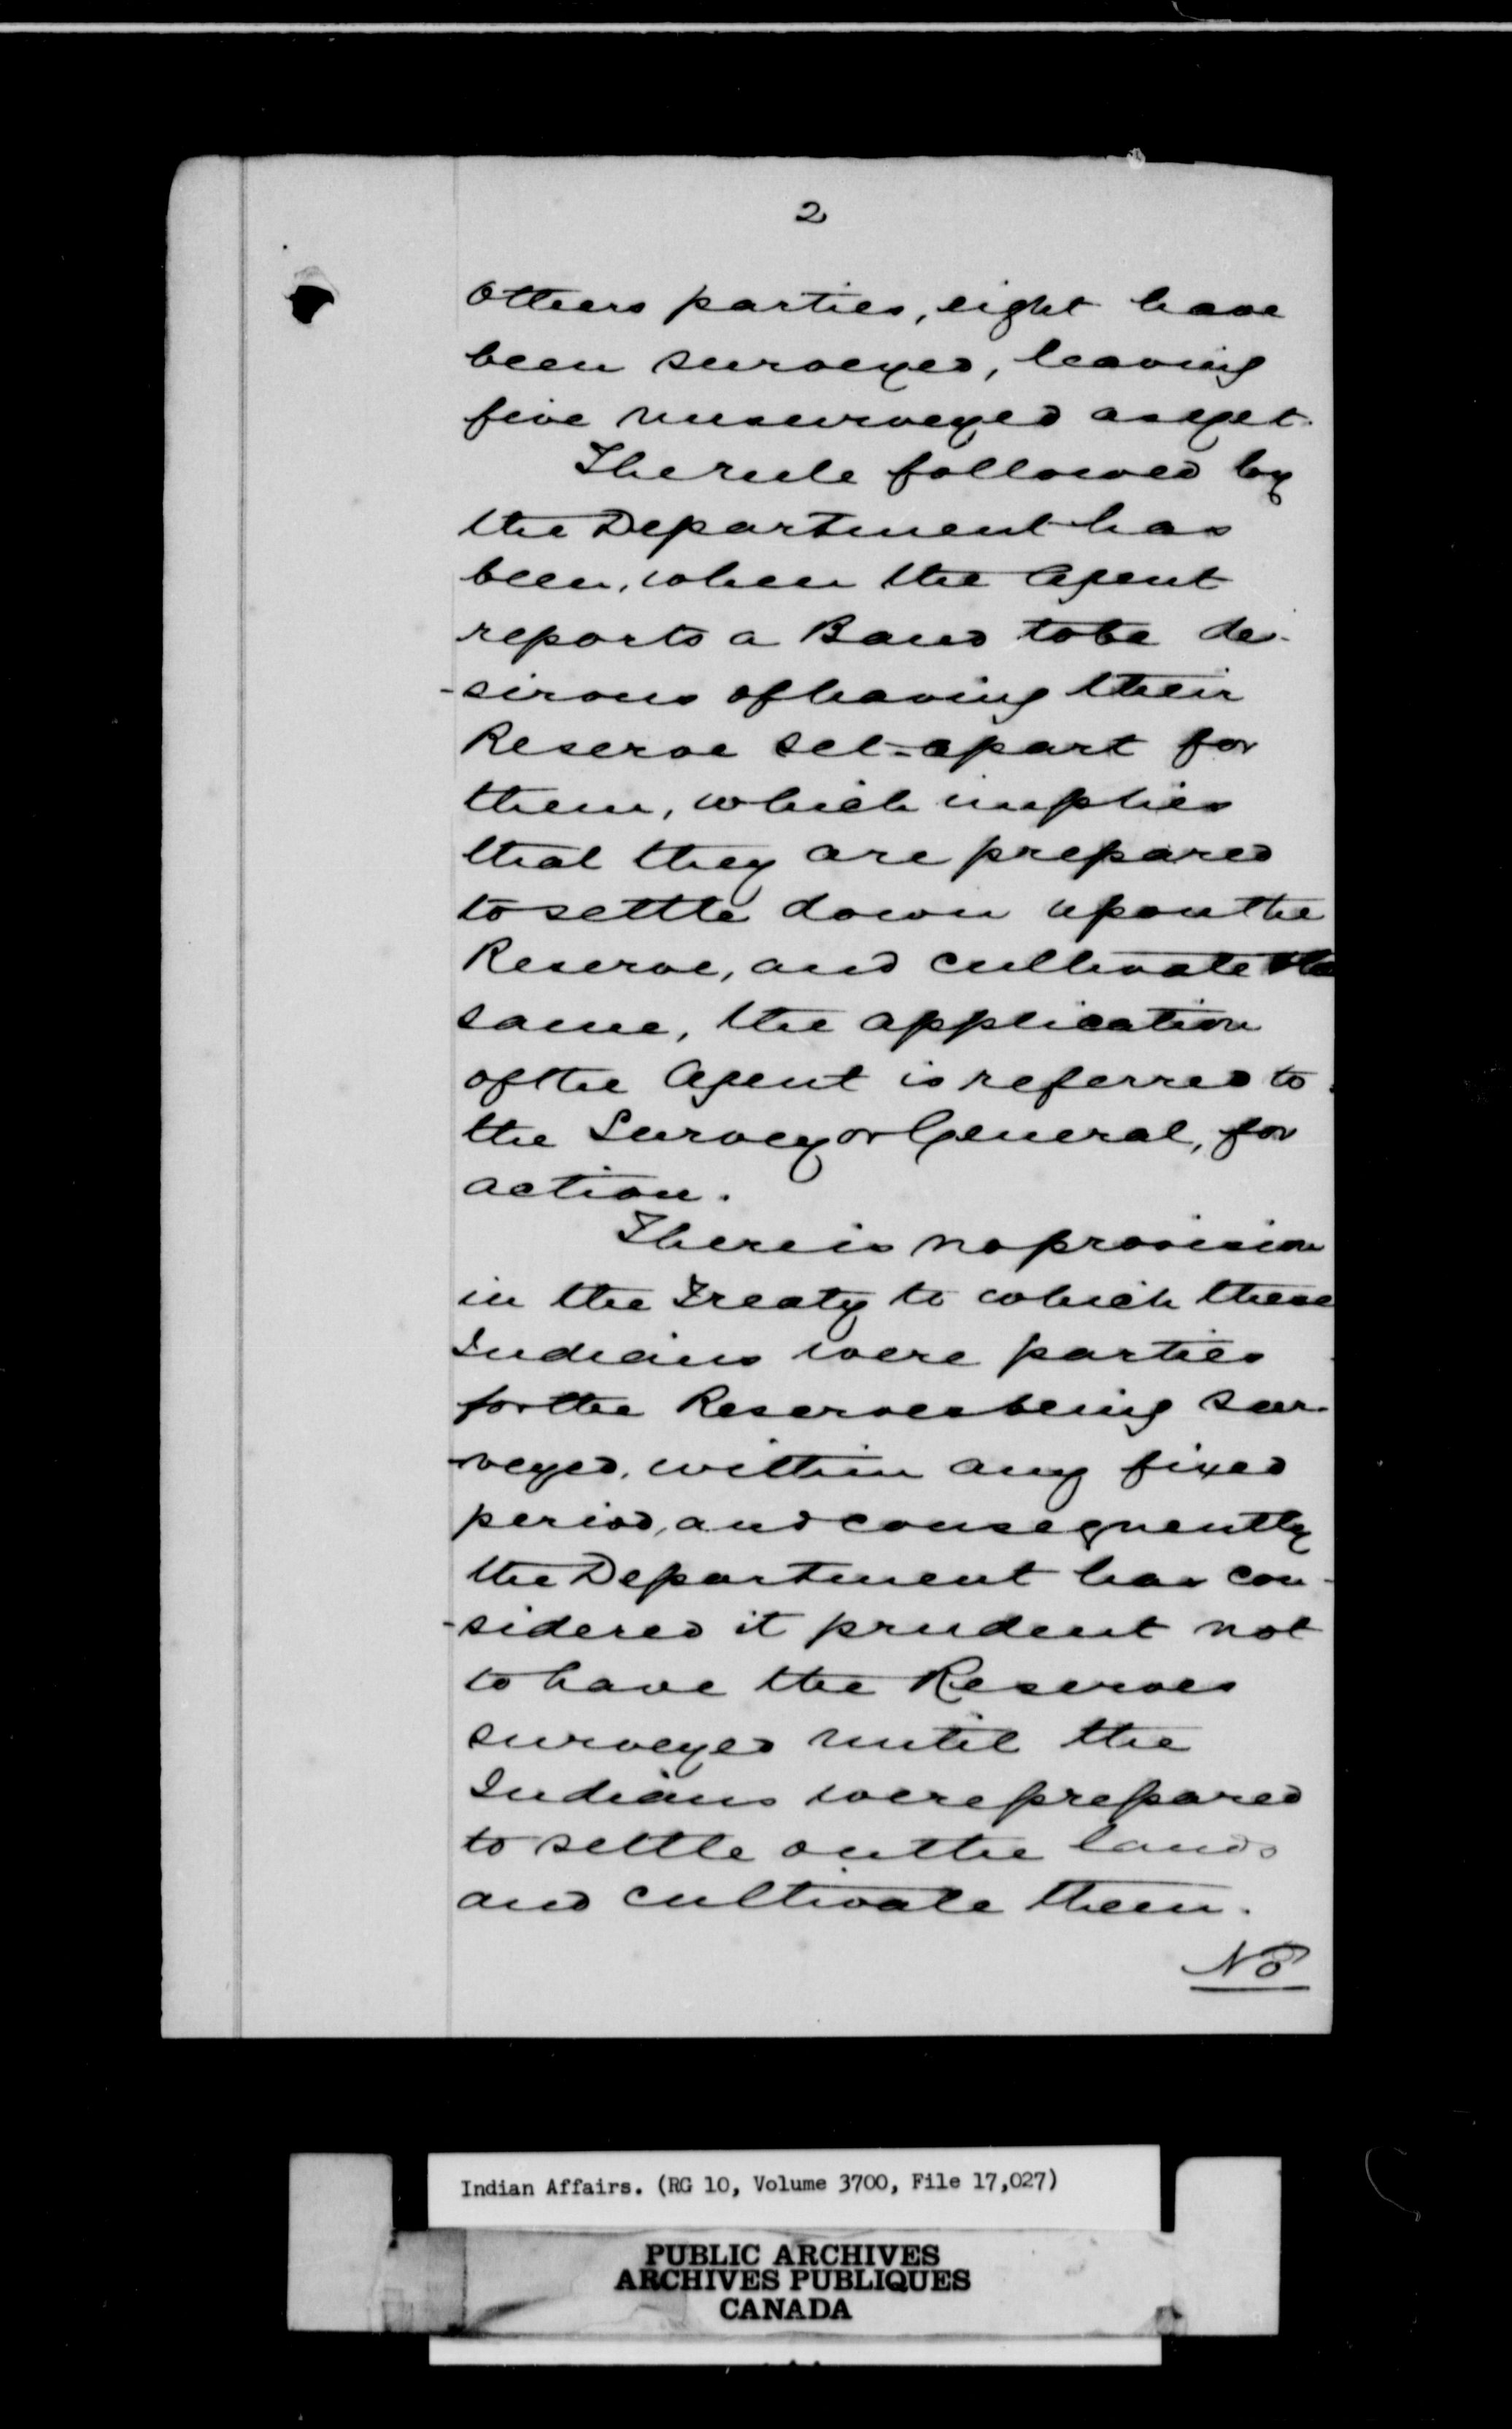 2
others parties, eight have
been surveyed, leaving
five unsurveyed as yet.
The rule followed by
the Department has
been, when the Agent
reports a Band to be de-
-sirous of having their
Reserve set-apart for
them, which implies
that they are prepared
to settle down upon the
Reserve, and cultivate the
same, the application
of the Agent is referred to
the Surveyor General, for
action.
There is no provision
in the Treaty to which these
Indians were parties
for the Reserves being sur-
-veyed, within any fixed
period, and consequently
the Department has con-
-sidered it prudent not
to have the Reserves
surveyed until the
Indians were prepared
to settle on the lands
and cultivate them.
No
Indian Affairs. (RG 10, Volume 3700, File 17,027)
PUBLIC ARCHIVES
ARCHIVES PUBLIQUES
CANADA